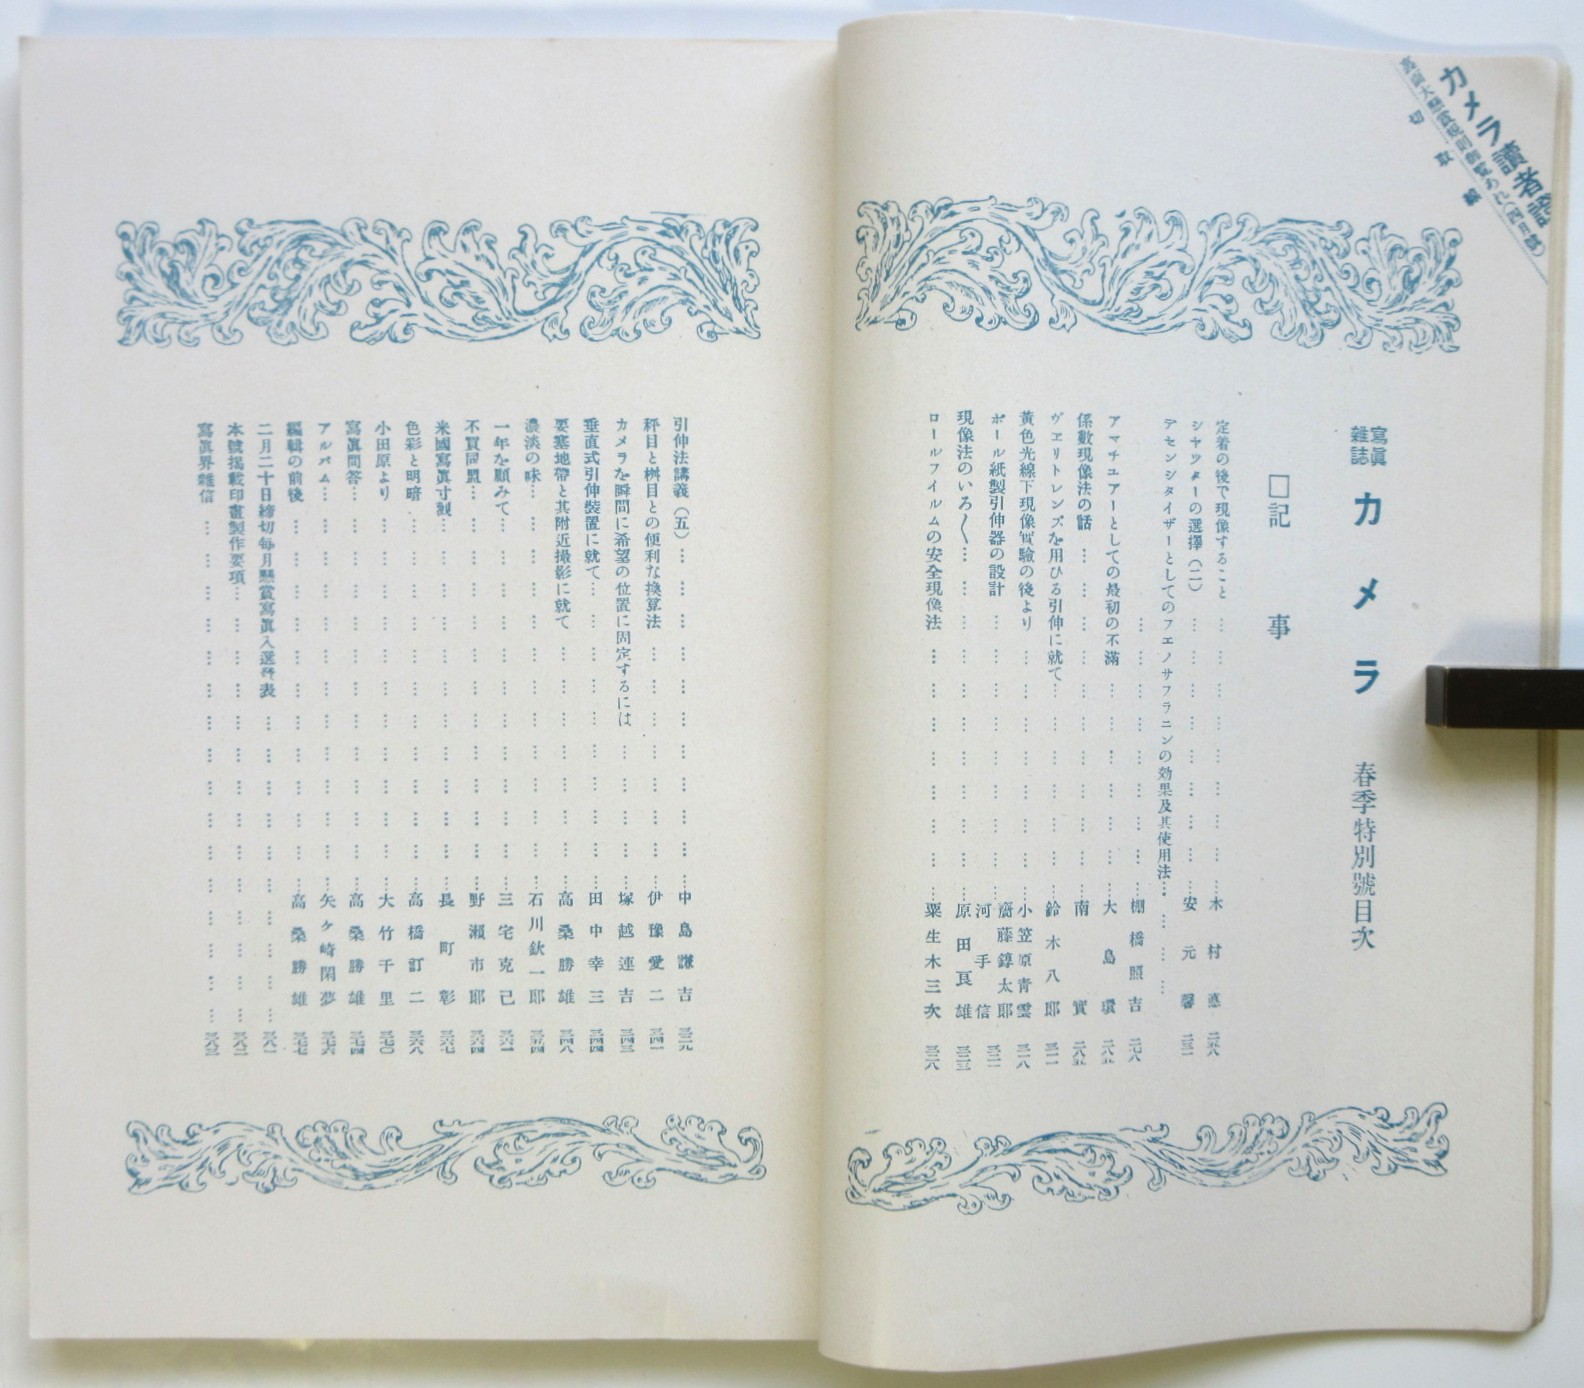 カメラ讀者證
切取線
寫眞雜誌 カメラ 春季特別號目次
□記事
定着の後で現像すること 木村 二五八
シヤツターの選擇(二) 安元馨 二三一
デセンシタイザーとしてのフエノサフラニンの効果及其使用法
棚橋照吉 二七八
アマチユアーとしての最初の不滿 大島環 二八五
係數現像法の話 南實 二八五
ヴエリトレンズを用ひる引伸に就て 鈴木八郎 三一一
黃色光線下現像實驗の後より 小笠原青雲 三一八
ボール紙製引伸器の設計 齋藤錞太郎 河手信 三二一
現像法のいろ〳〵 原田良雄 三二三
ロールフイルムの安全現像法 粟生木三次 三二六
引伸法講義(五) 中島謙吉 三二九
秤目と桝目との便利な換算法 伊豫愛二 三四一
カメラを瞬間に希望の位置に固定するには 塚越連吉 三四三
垂直式引伸裝置に就て 田中幸三 三四四
要塞地帶と其附近撮影に就て 高桑勝雄 三四八
濃淡の味 石川欽一郎 三五四
一年を顧みて 三宅克己 三六一
不買同盟 野瀨市郎 三六四
米國寫眞寸觀 長町彰 三六七
色彩と明暗 高橋訂二 三六八
小田原より 大竹千里 三七〇
寫眞問答 高桑勝雄 三七四
アルバム 矢ケ崎閑夢 三七六
編輯の前後 高桑勝雄 三七七
二月二十日締切每月懸賞寫眞入選發表 三八一
本號揭載印畫製作要項 三八二
寫眞界雜信 三八三